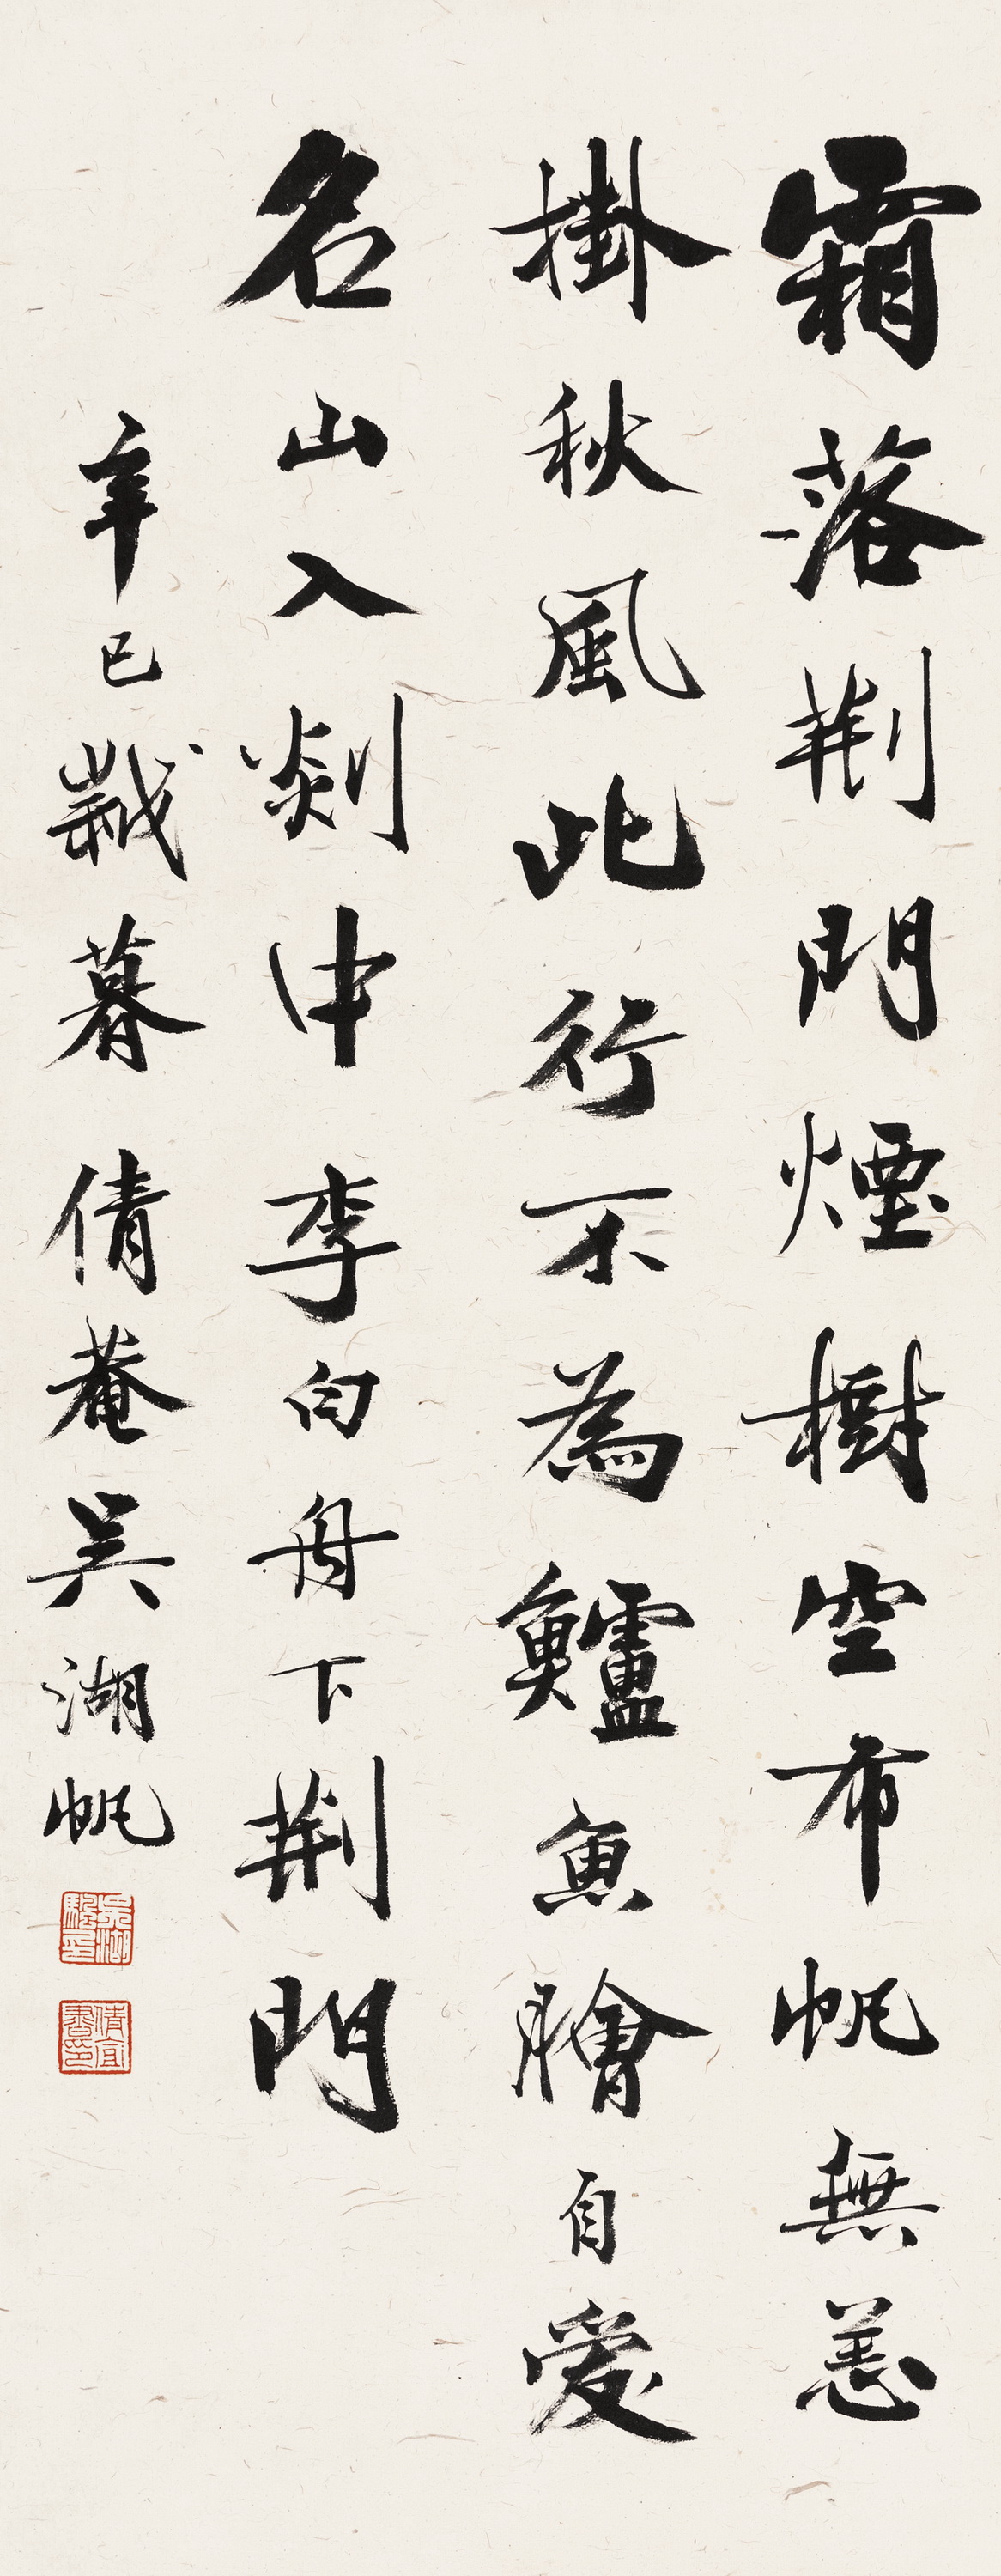 霜落荆門煙樹空布帆無恙
掛秋風此行不為鱸魚膾自愛
名山入剡中 李白舟下荆門
辛巳歲暮倩菴吳湖帆
吳湖颿印